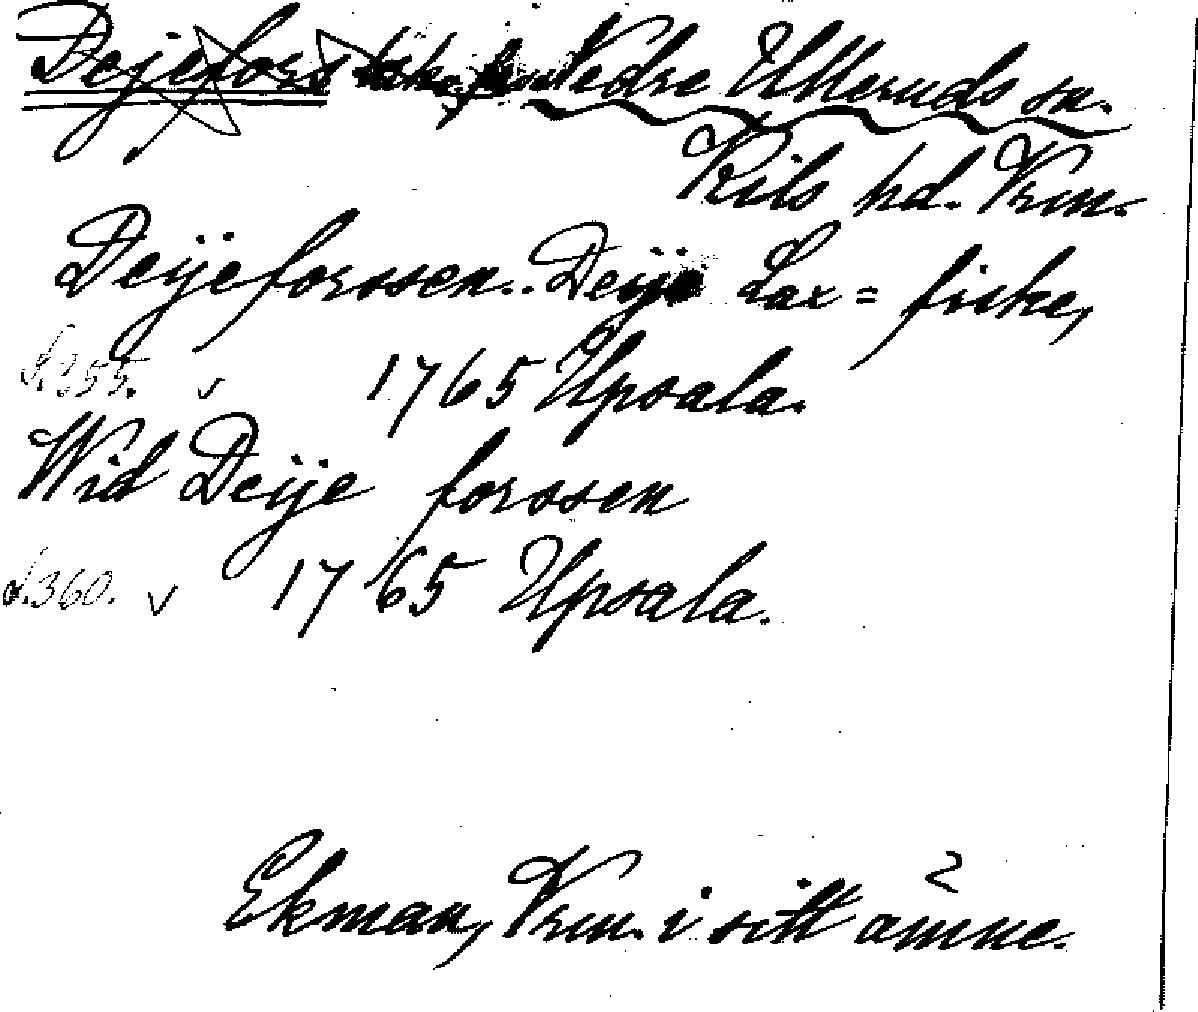 Dejefors Nedre Ulleruds sn.
Kils hd. Vrm.
Deijeforssen. Deije Lax = fiske,
S.355. v 1765 Upsala.
Wid Deije forssen
S.360. v 1765 Upsala.
Ekman, Vrm. i sitt ämne.